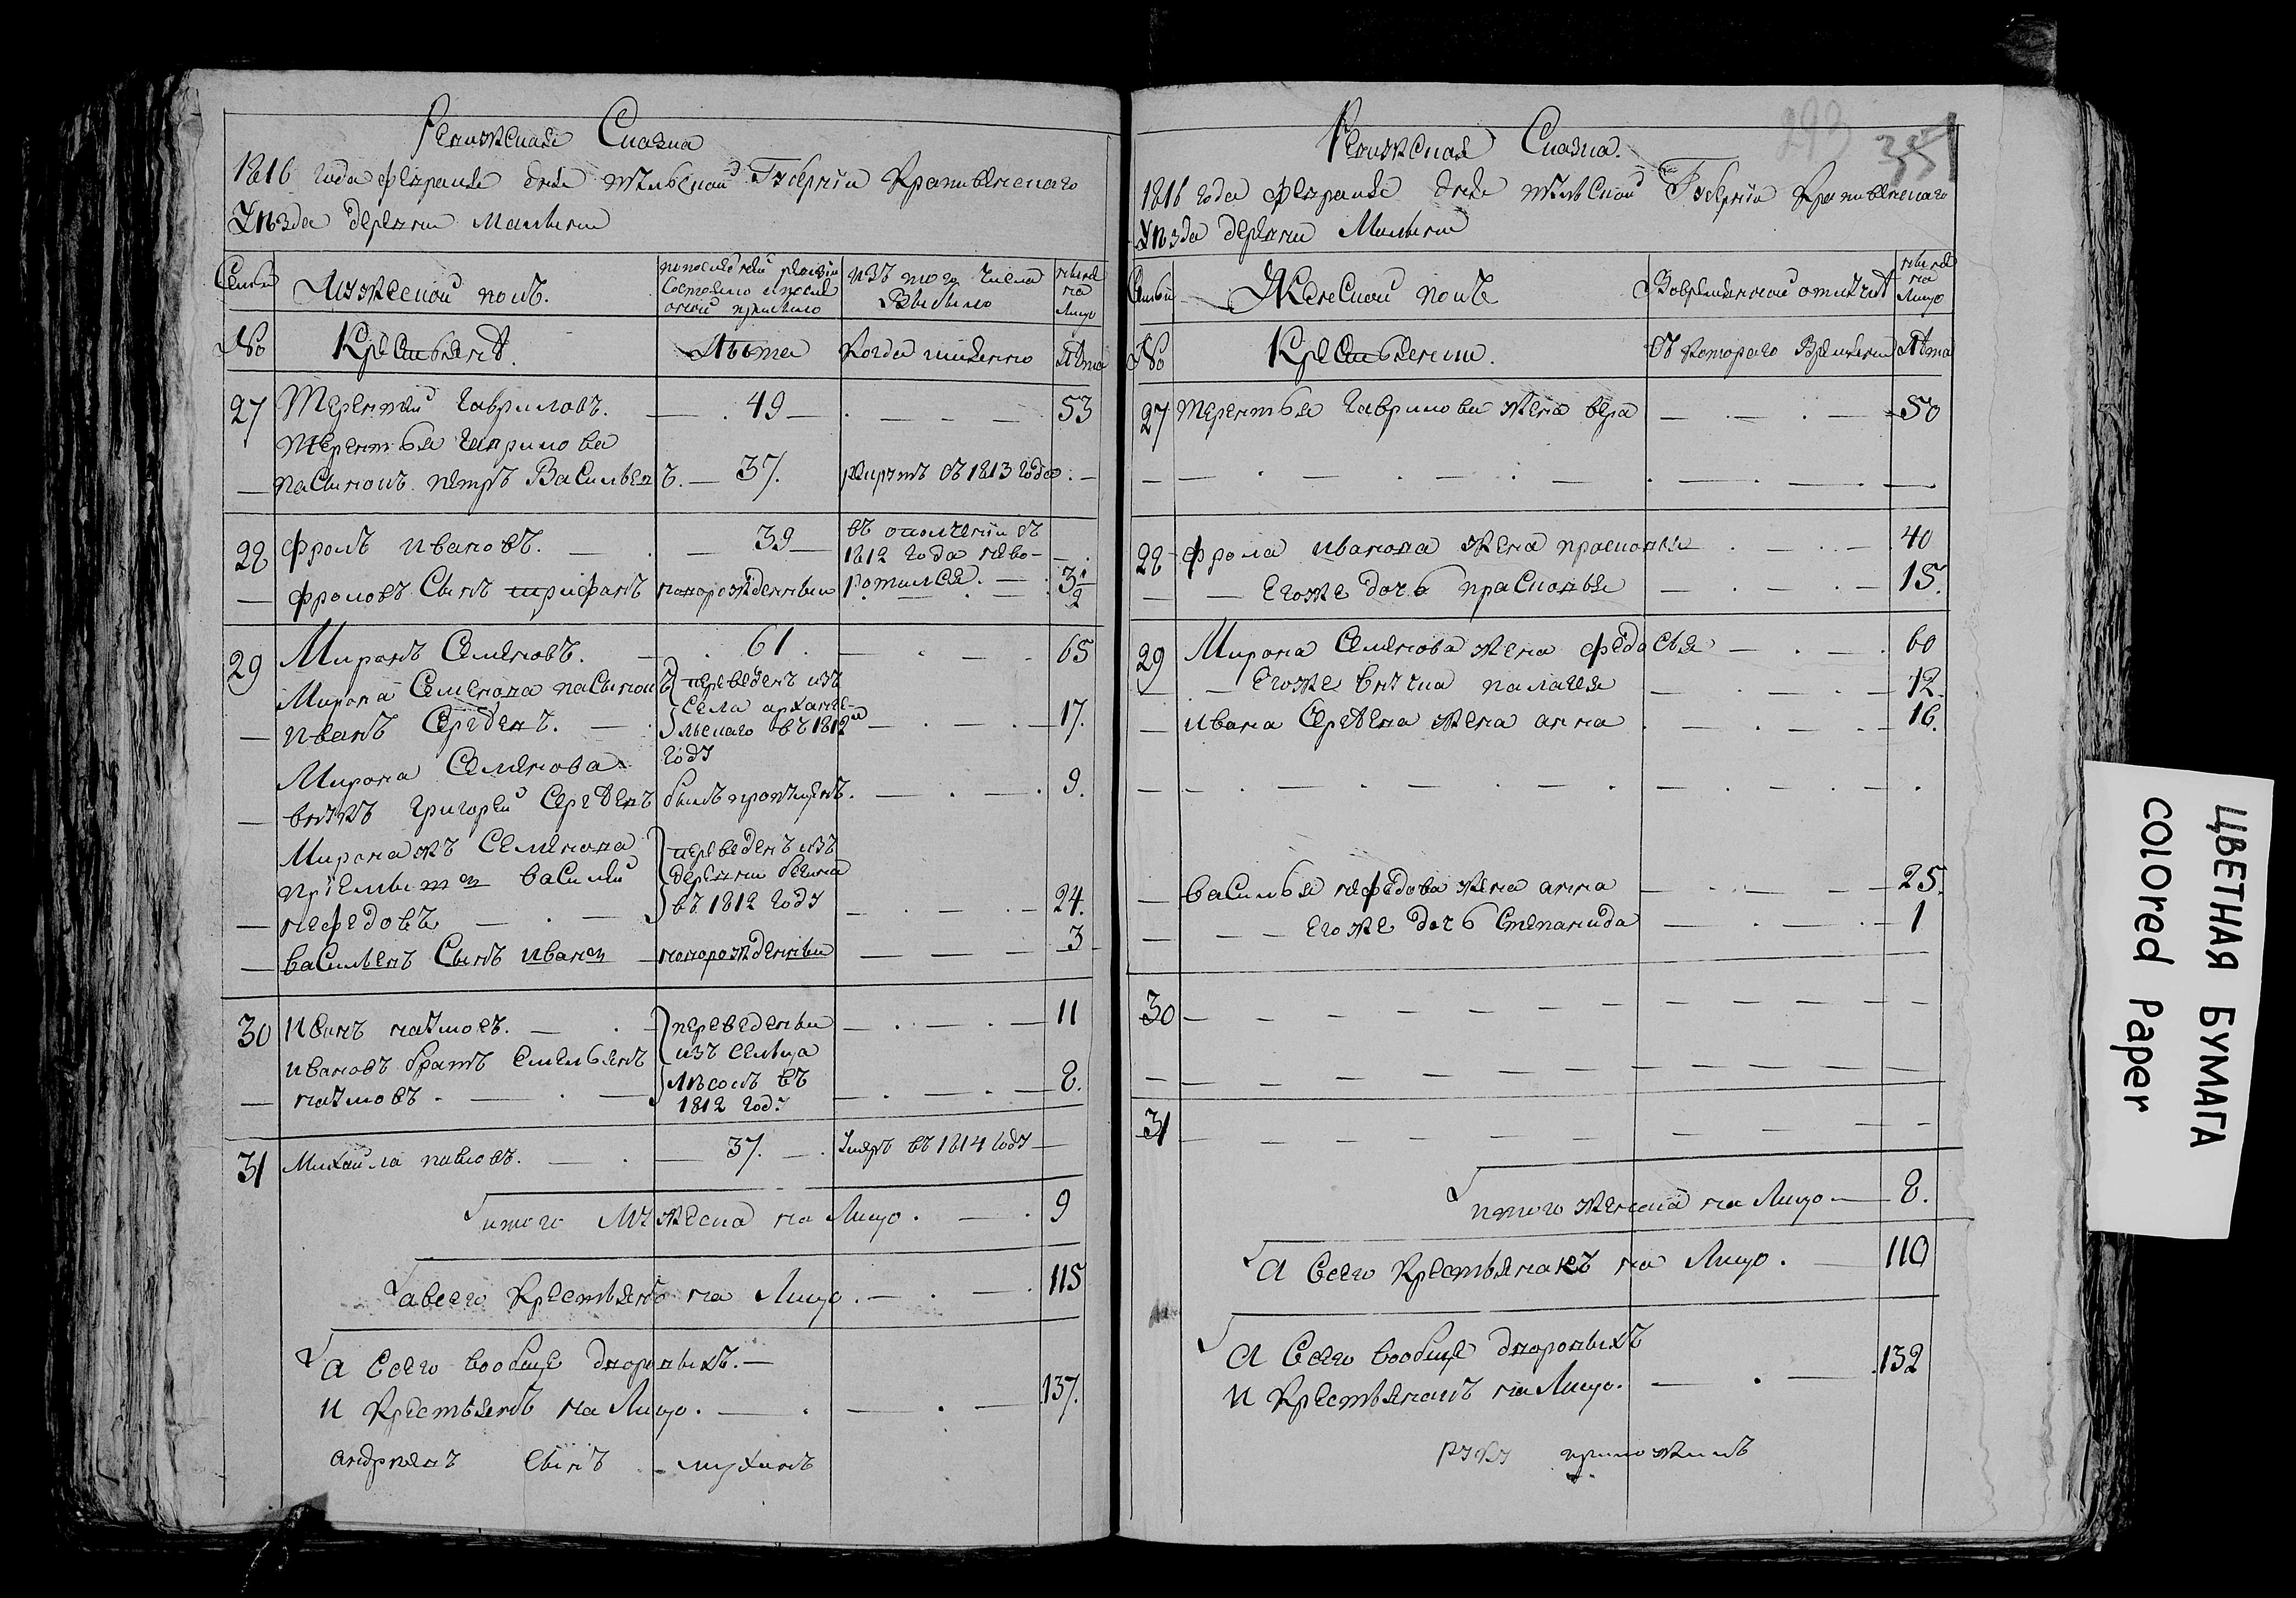 Ревижская Сказка
1816 года февраля дня тульской Губернии Крапивенскаго
Уезда деревни Малыни
Семьи
Мужеской полъ.
по последней ревизии состояло и после оной прибыло
изъ того числа Выбыло
ныне на Лицо
№
Крестьянъ.
Лета
Когда имянно
Лета
27 Терентей Гавриловъ. 49 53
Терентья Гаврилова
пасынокъ петръ Васильевъ. 37. рекрутъ въ 1813 года
28 фролъ ивановъ. 39 въ ополчении съ
1812 года нево-
ротился.
фроловъ Сынъ трифанъ новорожденный 3 1/2
29 Миронъ Семеновъ. 61. 65
Мирона Семенова пасынокъ переведенъ изъ
иванъ Сергеевъ. Села арханге-
льскаго въ 1812м 17.
году
Мирона Семенова
внукъ григорей Сергеевъ былъ пропущенъ. 9.
Миронажъ Семенова переведенъ изъ
приемышъ василей деревни
нефедовъ въ 1812 году 24.
васильевъ Сынъ иванъ новорожденный 3
30 Иванъ наумовъ. переведены 11
ивановъ братъ Емельянъ изъ сельца
наумовъ. въ 8.
1812 году
31 Михайла павловъ. 37. умеръ въ 1814 году
итого Мужеска на Лицо. 9
а всего Крестьянъ на Лицо. 115
а Всего вообще дворовыхъ.
и Крестьянъ на Лицо. 137.
андреевъ сынъ мухинъ
293
351
Ревижская Сказка.
1816 года февраля дня тульской Губернии Крапивенскаго
Уезда деревни Малыни
Семьи
Женской полъ
Вовременной отлучке
ныне на Лицо
№
Крестьянки.
Съ котораго Времени
Лета
27 терентья Гаврилова жена вера 50
28 фрола иванова жена прасковья 40
Егоже дочь прасковья 15.
29 Мирона Семенова жена федосья 60
Егоже внучка палагея 12.
ивана Сергеева жена анна 16.
василья нефедова жена анна 25.
егоже дочь степанида 1
30
31
итого женска на Лицо 8.
а Всего крестьянокъ на Лицо. 110
а Всего вообще дворовыхъ
и Крестьянокъ на Лицо. 132
руку приложилъ
ЦВЕТНАЯ БУМАГА
COlOred Paper